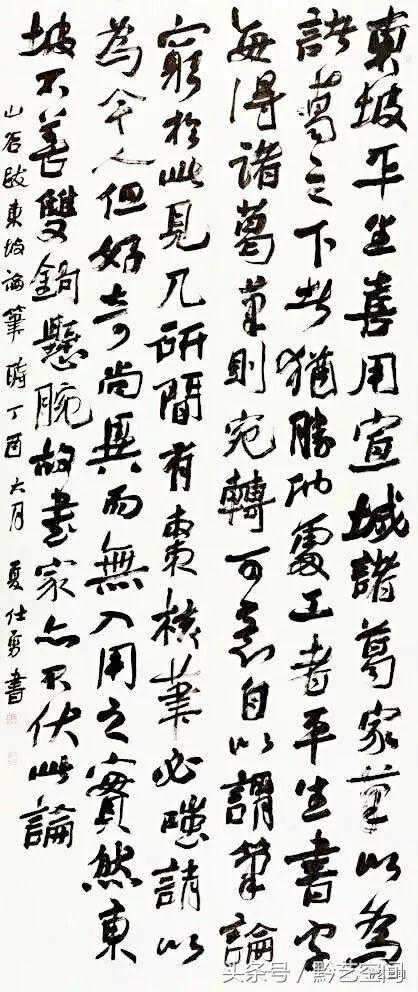 東坡平生喜用宣城諸葛家筆以為
諸葛之下者猶勝他處工者平生書字
每得諸葛筆則宛轉可意自以謂筆論
窮於此見几研間有棗核筆必嗤誚以
為今人但好奇尚異而無入用之實然東
坡不善雙鉤懸腕故書家亦不伏此論
山谷跋東坡論筆 時丁酉六月 夏仕勇書
头条号/黔艺空间